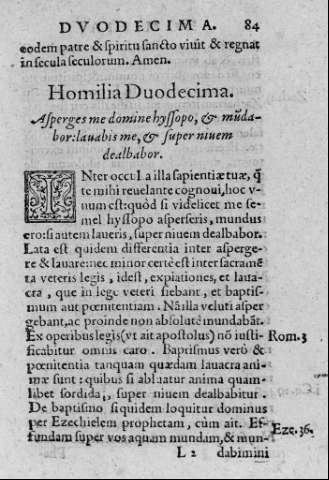 DVODECIMA. 84
eodem patre & spiritu sancto viuit & regnat
in secula seculorum. Amen.
Homilia Duodecima.
Asperges me domine hyssopo, & mũda-
bor: lauabis me, & super niuem
dealbabor.
INter occul a illa sapientiæ tuæ, q̃
te mihi reuelante cognoui, hoc v-
num est: quòd si videlicet me se-
mel hyssopo asperseris, mundus
ero: si autem laueris, super niuem dealbabor.
Lata est quidem differentia inter asperge-
re & lauare: nec minor certè est inter sacramẽ
ta veteris legis, idest, expiationes, et laua-
cra, que in lege veteri fiebant, et baptis-
mum aut pœnitentiam. Nã illa veluti asper
gebant, ac proinde non absolutè mundabãt.
Ex operibus legis (vt ait apostolus) nõ iusti- Rom. 3
ficabitur omnis caro. Baptismus verò &
pœnitentia tanquam quædam lauacra ani-
mæ sunt: quibus si abluatur anima quam-
libet sordida, super niuem dealbabitur.
De baptismo siquidem loquitur dominus
per Ezechielem prophetam, cùm ait. Ef- Eze. 36.
fundam super vos aquam mundam, & mun-
L 2 dabimini